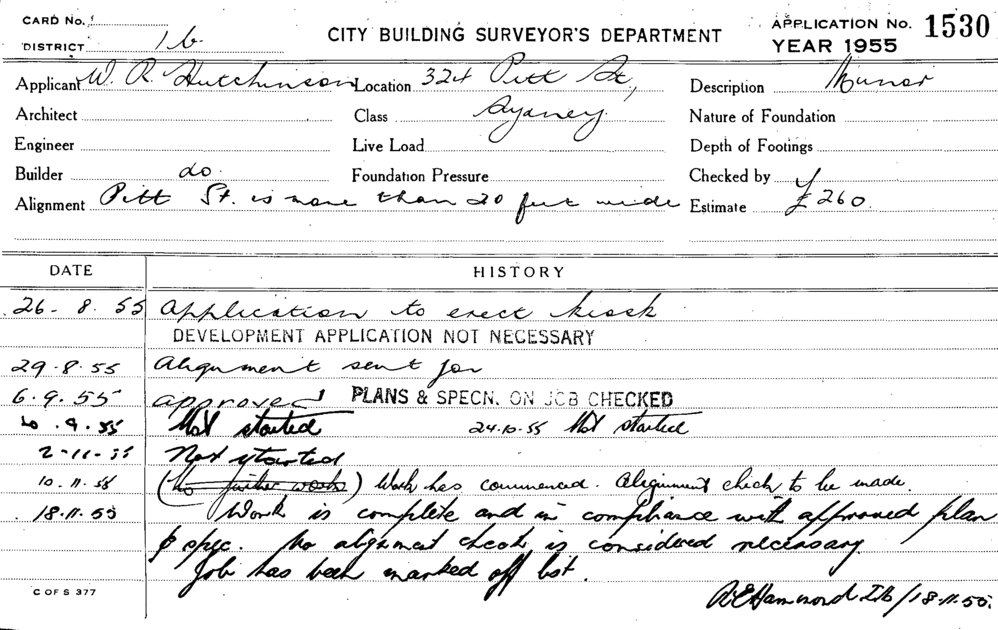 CARD No.
DISTRICT 1b
CITY BUILDING SURVEYOR'S DEPARTMENT
APPLICATION No. 1530
YEAR 1955
Applicant W. R. Hutchinson Location 324 Pitt St, Description Minor
Architect Class Sydney Nature of Foundation
Engineer Live Load Depth of Footings
Builder do. Foundation Pressure Checked by
Alignment Pitt St. is more than 20 feet wide Estimate £260.
DATE HISTORY
26-8.55 Application to erect kiosk
DEVELOPMENT APPLICATION NOT NECESSARY
29.8.55 Alignment sent for
6.9.55 approved PLANS & SPECN. ON JOB CHECKED
.9.55 Not started 24.10.55 Not started
2-11-55 Not started
10.11.55 (No further work) Work has commenced. Alignment check to be made.
18.11.55 Work is complete and in compliance with approved plan
& spec. No alignment check is considered necessary.
Job has been marked off list.
C OF S 377
A E Hammond Ib/18.11.55.